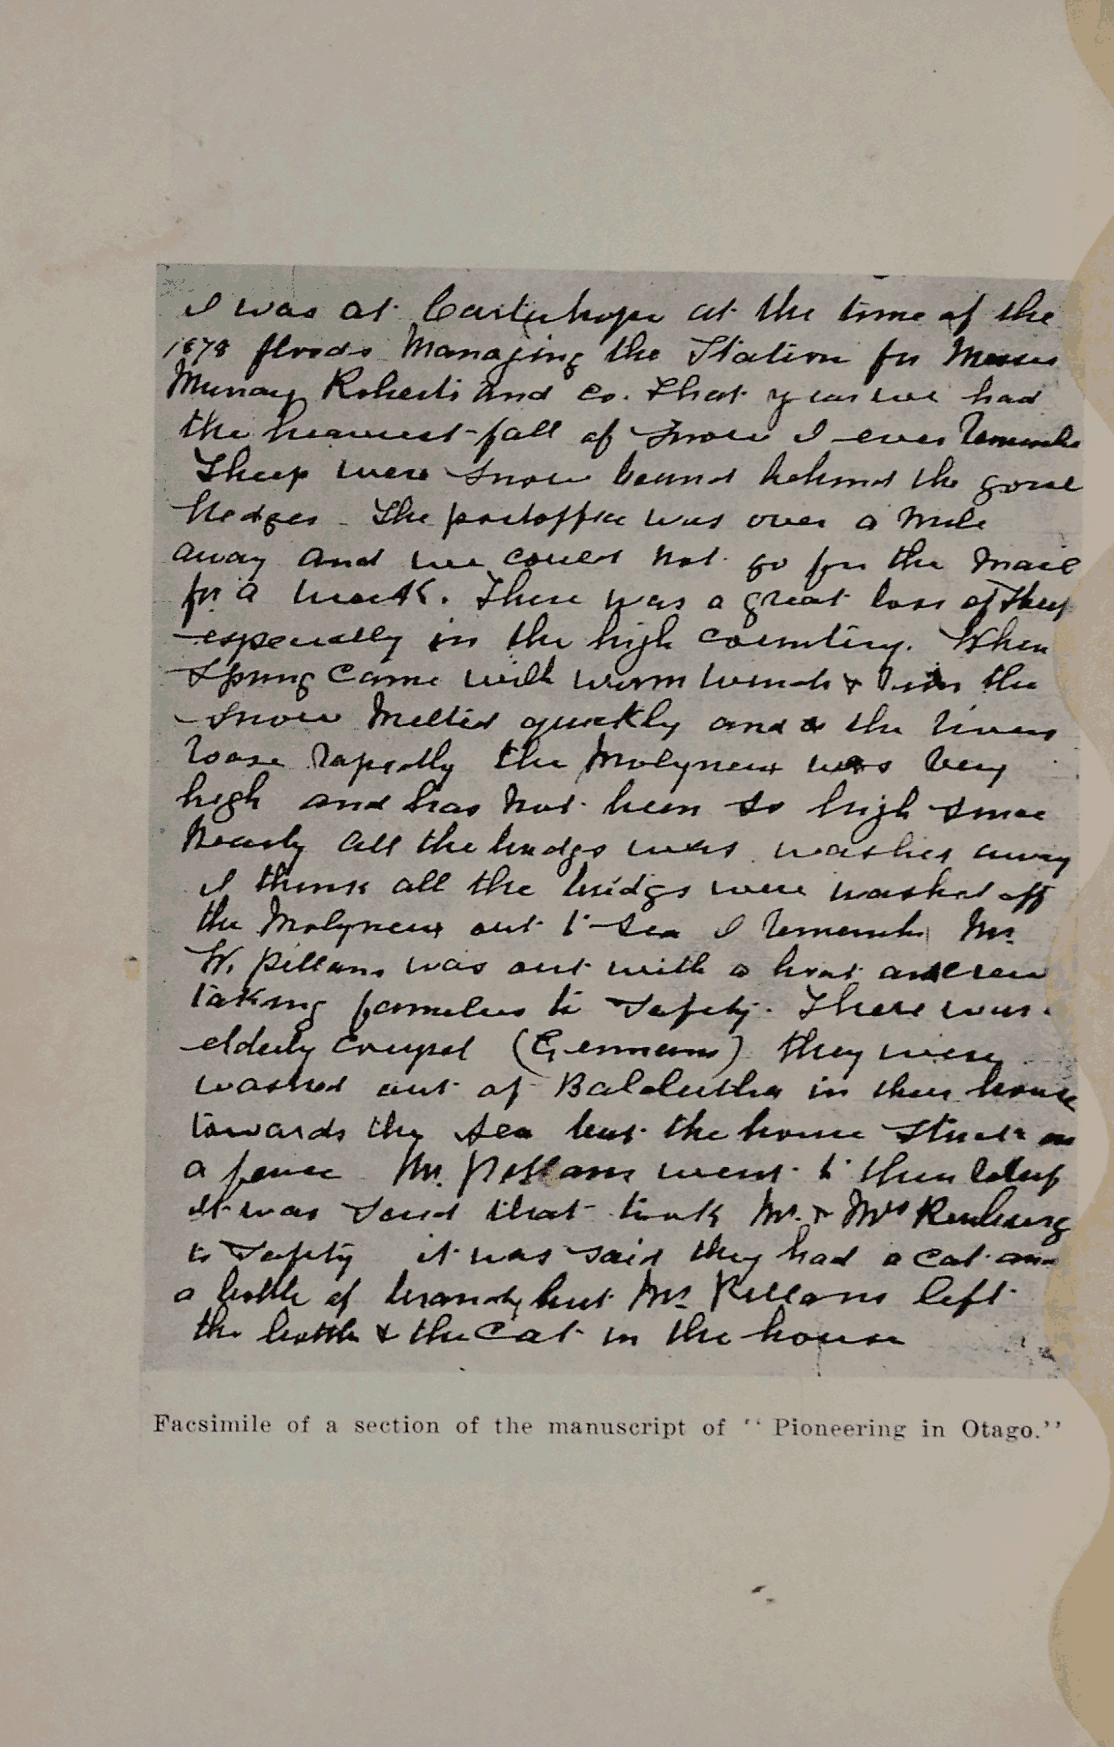 I was at Carterhope at the time of the
1878 floods Managing the Station for Messrs
Murray Roberts and Co. That year we had
the heaviest fall of snow I ever remember
Sheep were snow bound behind the gorse
hedges The postoffice was over a mile
away and we could not go for the mail
for a week. There was a great loss of sheep
especially in the high country. When
Spring came with warm winds & rain the
snow melted quickly and & the rivers
rose rapidly the Molyneux was very
high and has not been so high since
nearly all the bridgs was washed away
I think all the bridgs were washed off
the Molyneux out to sea I remember Mr.
W. Pillans was out with a boat and crew
taking families to safety. There was
elderly coupel (Germans) they were
washed out of Balclutha in their house
towards the sea but the house stuck on
a fence Mr. Pillans went to their
It was said that took Mr. & Mrs
to safety it was said they had a cat and
a bottle of brandy but Mr. Pillans left
the bottle & the cat in the house
Facsimile of a section of the manuscript of "Pioneering in Otago."